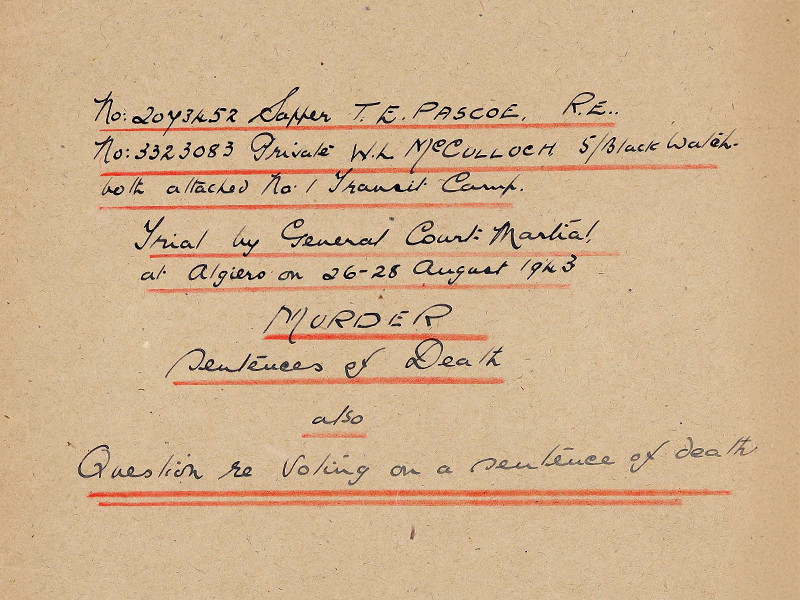 No: 2073452 Sapper T. E. PASCOE, R.E..
No: 3323083 Private W.L McCULLOCH 5/Black Watch-
both attached No. 1 Transit Camp.
Trial by General Court-Martial,
at Algiers on 26-28 August 1943
MURDER
Sentences of Death
also
Question re Voting on a sentence of death